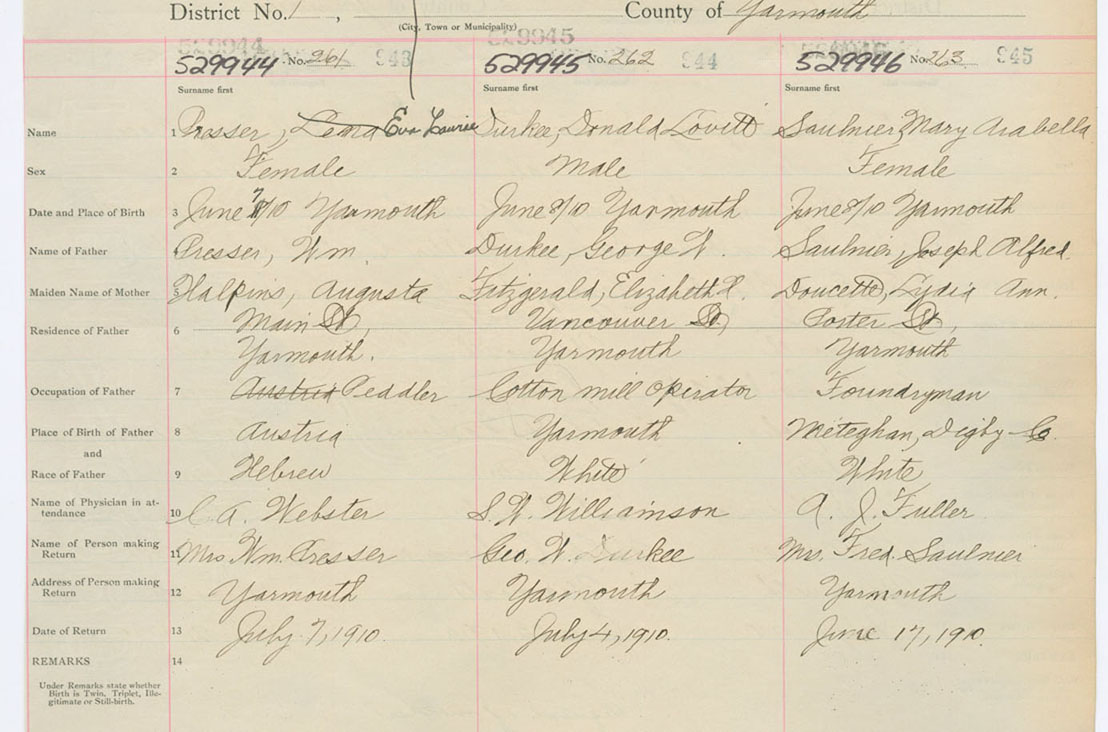 District No. 1, County of Yarmouth
(City, Town or Municipality)
529944 529945 529946
529944 No. 261 943 529945 No. 262 944 529946 No. 263 945
Surname first Surname first Surname first
Name 1 Presser, Lena Eva Laurie Durkee, Donald Lovitt Saulnier, Mary Arabella
Sex 2 Female Male Female
Date and Place of Birth 3 June 7/10 Yarmouth June 8/10 Yarmouth June 8/10 Yarmouth
Name of Father 4 Presser, Wm. Durkee, George W. Saulnier, Joseph Alfred.
Maiden Name of Mother 5 Halpins, Augusta Fitzgerald, Elizabeth Doucette, Lydia Ann.
Residence of Father 6 Main St, Vancouver St, Porter St,
Yarmouth. Yarmouth Yarmouth
Occupation of Father 7 Austria Peddler Cotton mill operator Foundryman
Place of Birth of Father 8 Austria Yarmouth Meteghan, Digby Co.
and
Race of Father 9 Hebrew White White
Name of Physician in at-
tendance 10 C. A. Webster S. W. Williamson A. J. Fuller
Name of Person making
Return 11 Mrs Wm. Presser Geo. W. Durkee Mrs. Fred. Saulnier
Address of Person making
Return 12 Yarmouth Yarmouth Yarmouth
Date of Return 13 July 7, 1910. July 4, 1910. June 17, 1910.
REMARKS 14
Under Remarks state whether
Birth is Twin, Triplet, Ille-
gitimate or Still-birth.